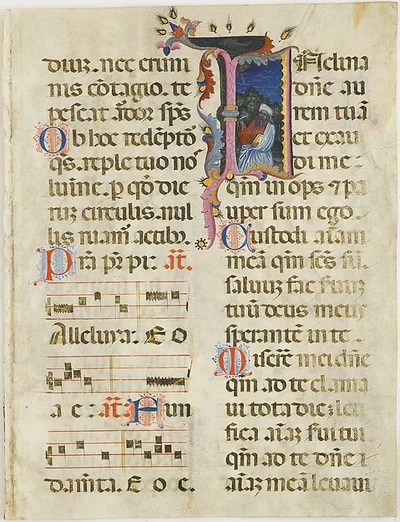 duuz. nec crimi
nis cõtagio. te
pescat ãdor sps̃
Ob hoc redẽptõ
qs. reple tuo no
lumine. p qd die
ruz circulis. nul
lis ruam̃ actibz.
Pia pr̃ pr. añ.
Alleluya. E O
a e. añ. Fun
damẽta. E o e.
Inclina
dñe au
rem tuã
et exau
di me.
qm̃ inops ⁊ pa
uper sum ego.
Custodi aĩam
meã qm̃ scs̃ sũ.
saluuz fac suuz
tuũ deus meus
sperantẽ in te.
Miserẽ mei dñe
qm̃ ad te clama
ui tota die: leti
fica aĩaz sui tui
qm̃ ad te dñe
aĩaz meã leuaui